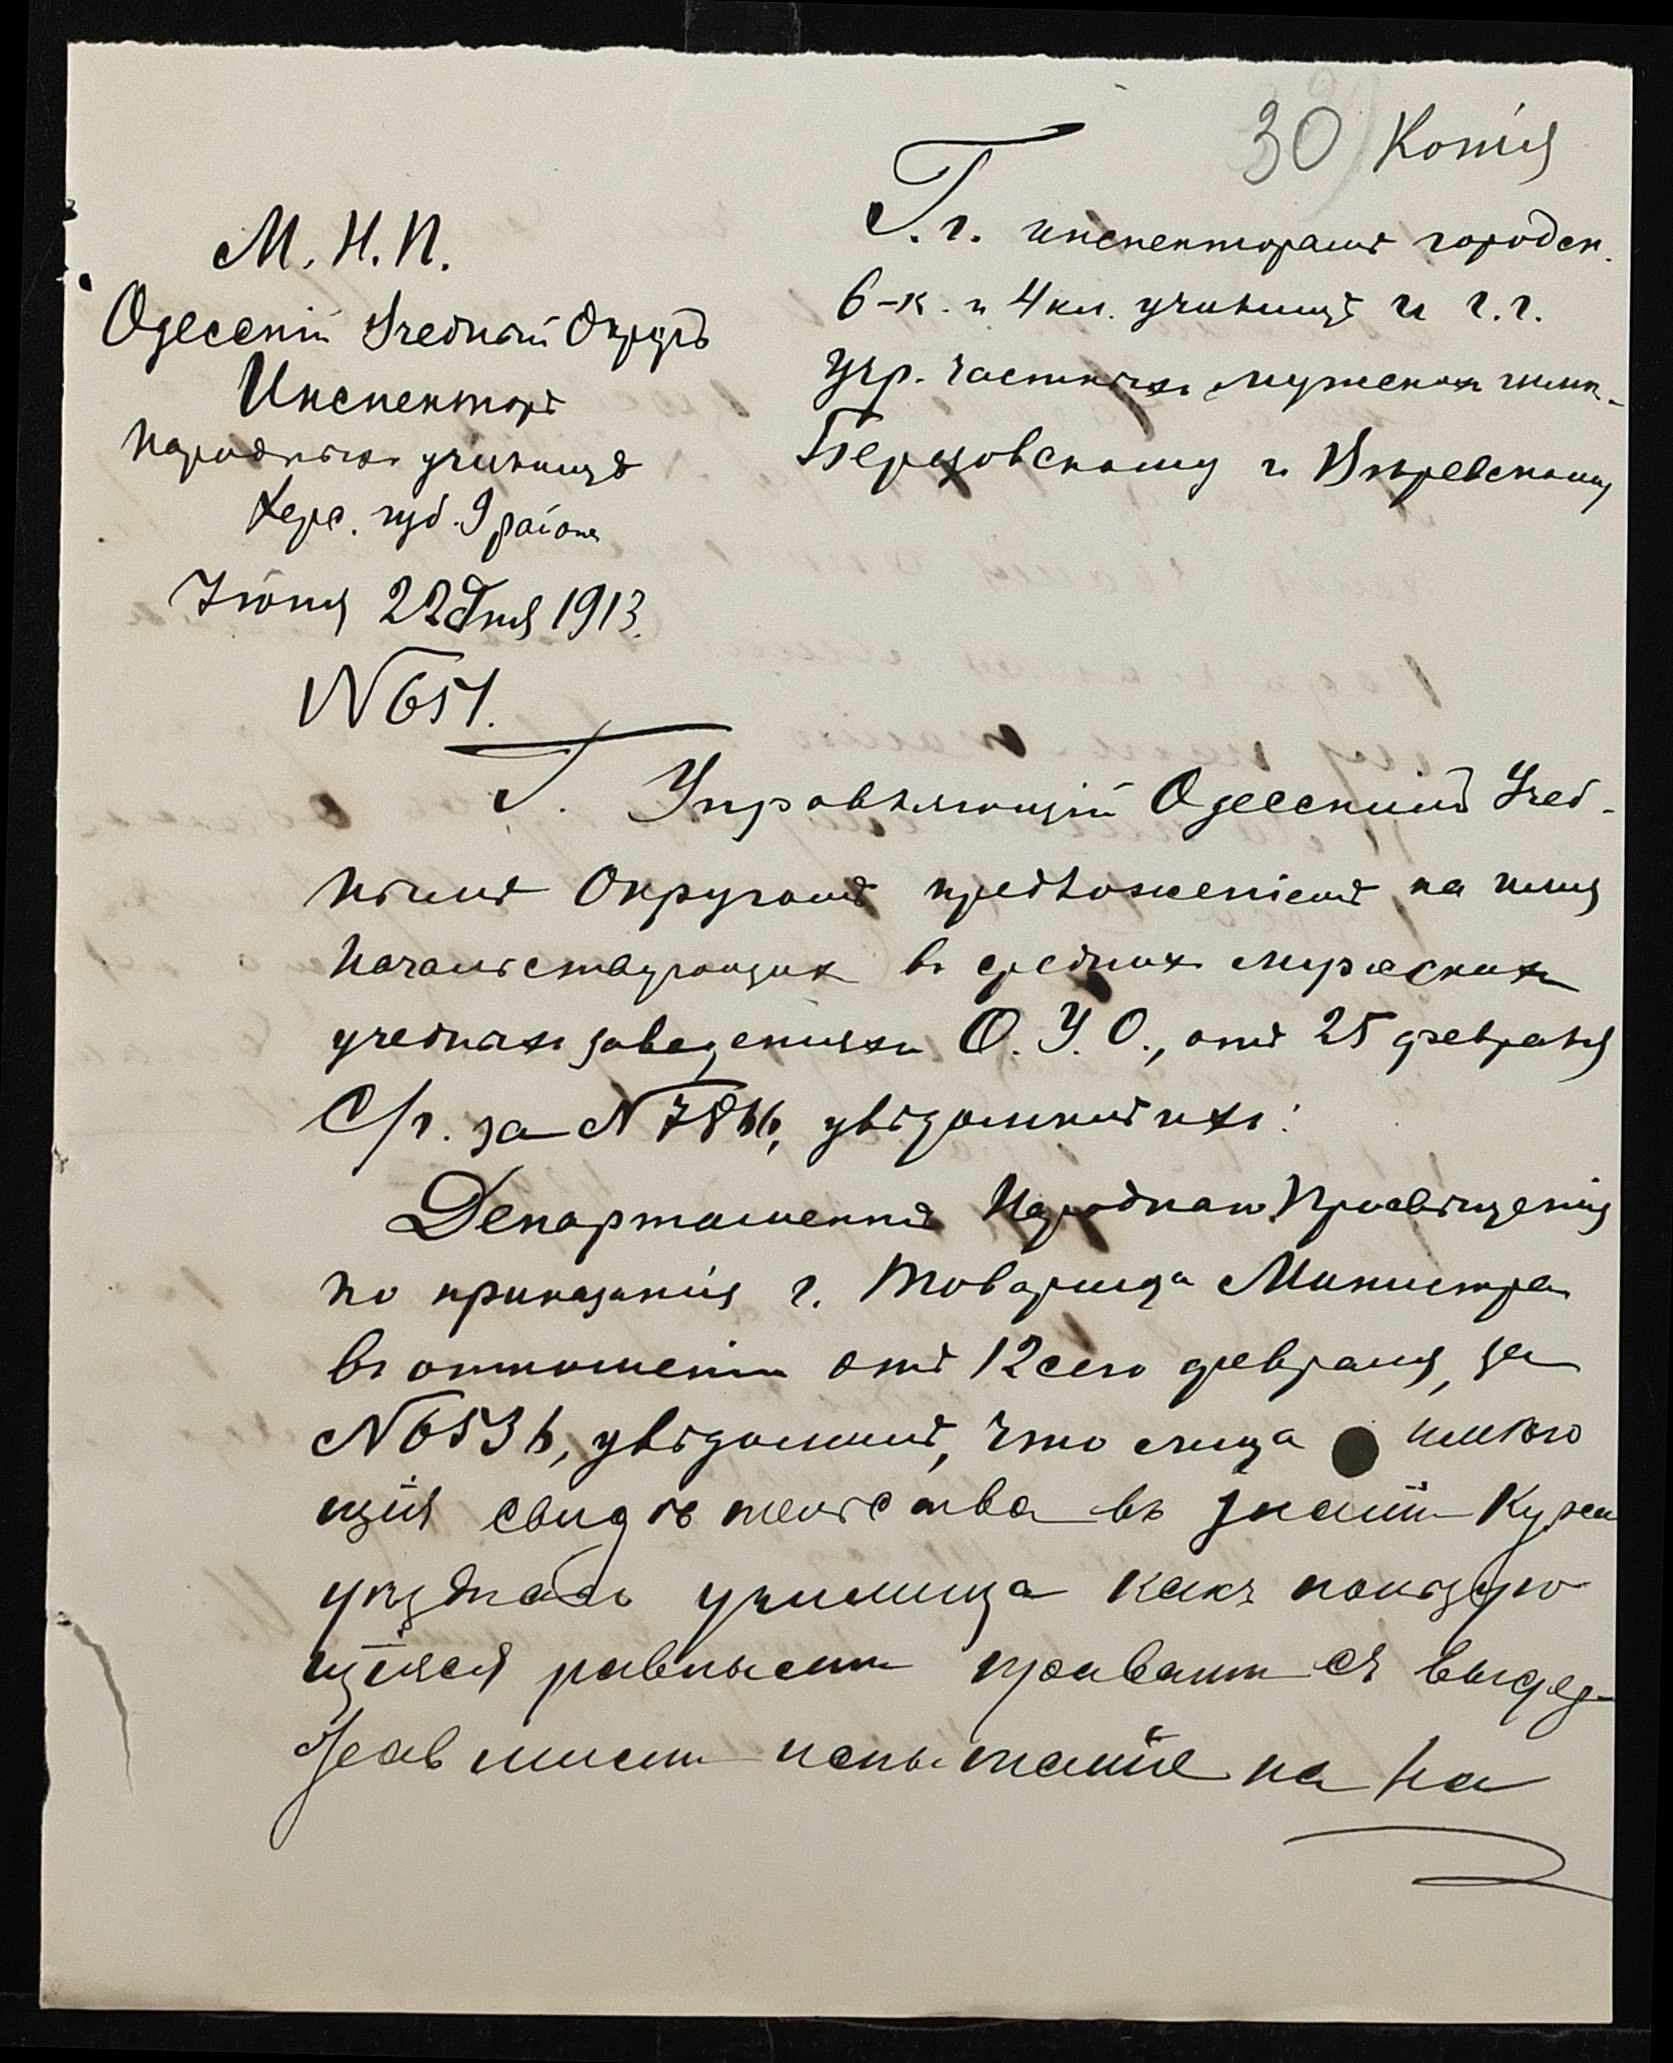 30 Копія
М. Н. П.
Одесскій Учебный Округъ
Инспекторъ
Народныхъ училищъ
Херс. губ. 9 района
Іюня 22 дня 1913.
№ 651.
Г.г. инспекторамъ городск.
6-к. и 4 кл. училищъ и г.г.
учр. частныхъ мужскихъ гимн.
Березовскому и
Г. Управляющій Одесскимъ Учеб-
нымъ Округомъ предложеніемъ на имя
Начальствующихъ въ среднихъ мужскихъ
учебныхъ заведеніяхъ О. У. О., отъ 25 февраля
с/г. за № увѣдомилъ ихъ:
Департаментъ Народнаго Просвѣщенія
по приказанія г. Товарища Министра
въ отношеніи отъ 12 сего февраля, за
№ 6536, увѣдомилъ, что лица имѣю
щія свидѣтельства въ знаніи Курса
уѣзднаго училища какъ пользую
щіяся равными правами съ выдер-
жавшими испытаніе на на